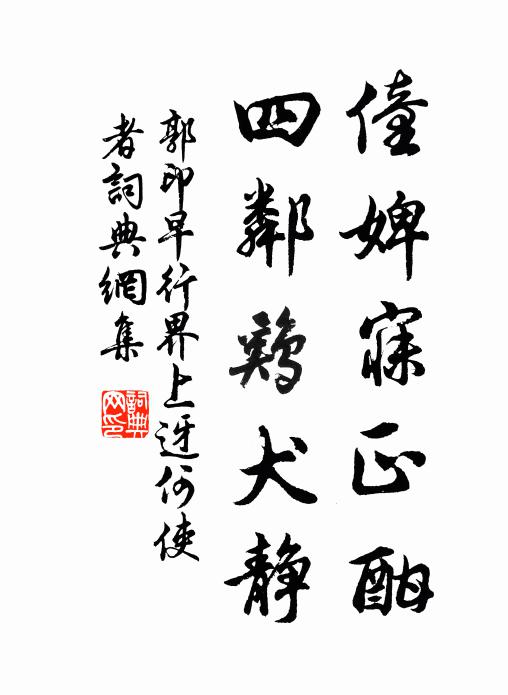 僮婢寐正酣
四鄰鷄犬静
郭印早行界上迓何使
者詞典網集
詞典网印